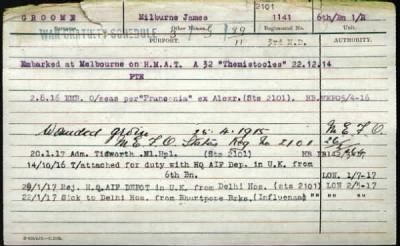 2101
GROOME Milburne James 1141 6th/Bn 1/R
WAR GRATUITY SCHEDULE
PURPORT. 3rd M.D. AUTHORITY.
Embarked at Melbourne on H.M.A.T. A 32 "Themistocles" 22.12.14
PTE
2.8.16 EMB. O/seas per "Franconia" ex Alexr. (Sts 2101).
Wounded groin 25.4.1915 M.E.F.O.
M.E.F.O. States Reg No 2101
20.1.17 Adm. Tidworth Ml.Hpl. (Sts 2101)
14/10/16 T/attached for duty with HQ AIF Dep. in U.K. from
6th Bn. LON 1/7-17
29/1/17 Rej. H.Q.AIF DEPOT in U.K. from Delhi Hos. (sts 2101) LON 2/5-17
22/1/17 Sick to Delhi Hos. from Bhurtpore Brks. (Influenza)